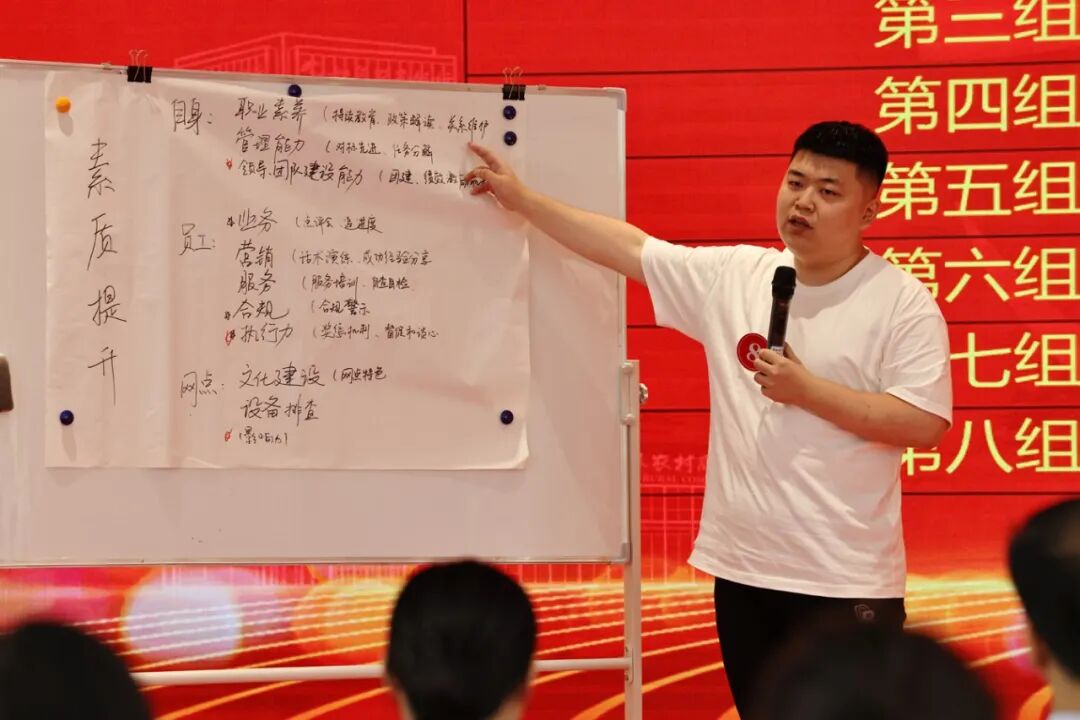 素质提升
自身：职业素养（持续教育、政策解读、关系维护
管理能力（对标先进、任务分解
领导、团队建设能力（团建、绩效
员工：业务（点评会 追进度
营销（话术演练、成功经验分享
服务（服务培训、自查自检
合规（合规警示
执行力（奖惩机制、督促和谈心
网点：文化建设（网点特色
设备排查
（影响力）
第三组
第四组
第五组
第六组
七组
第八组
农村
RURAL
8